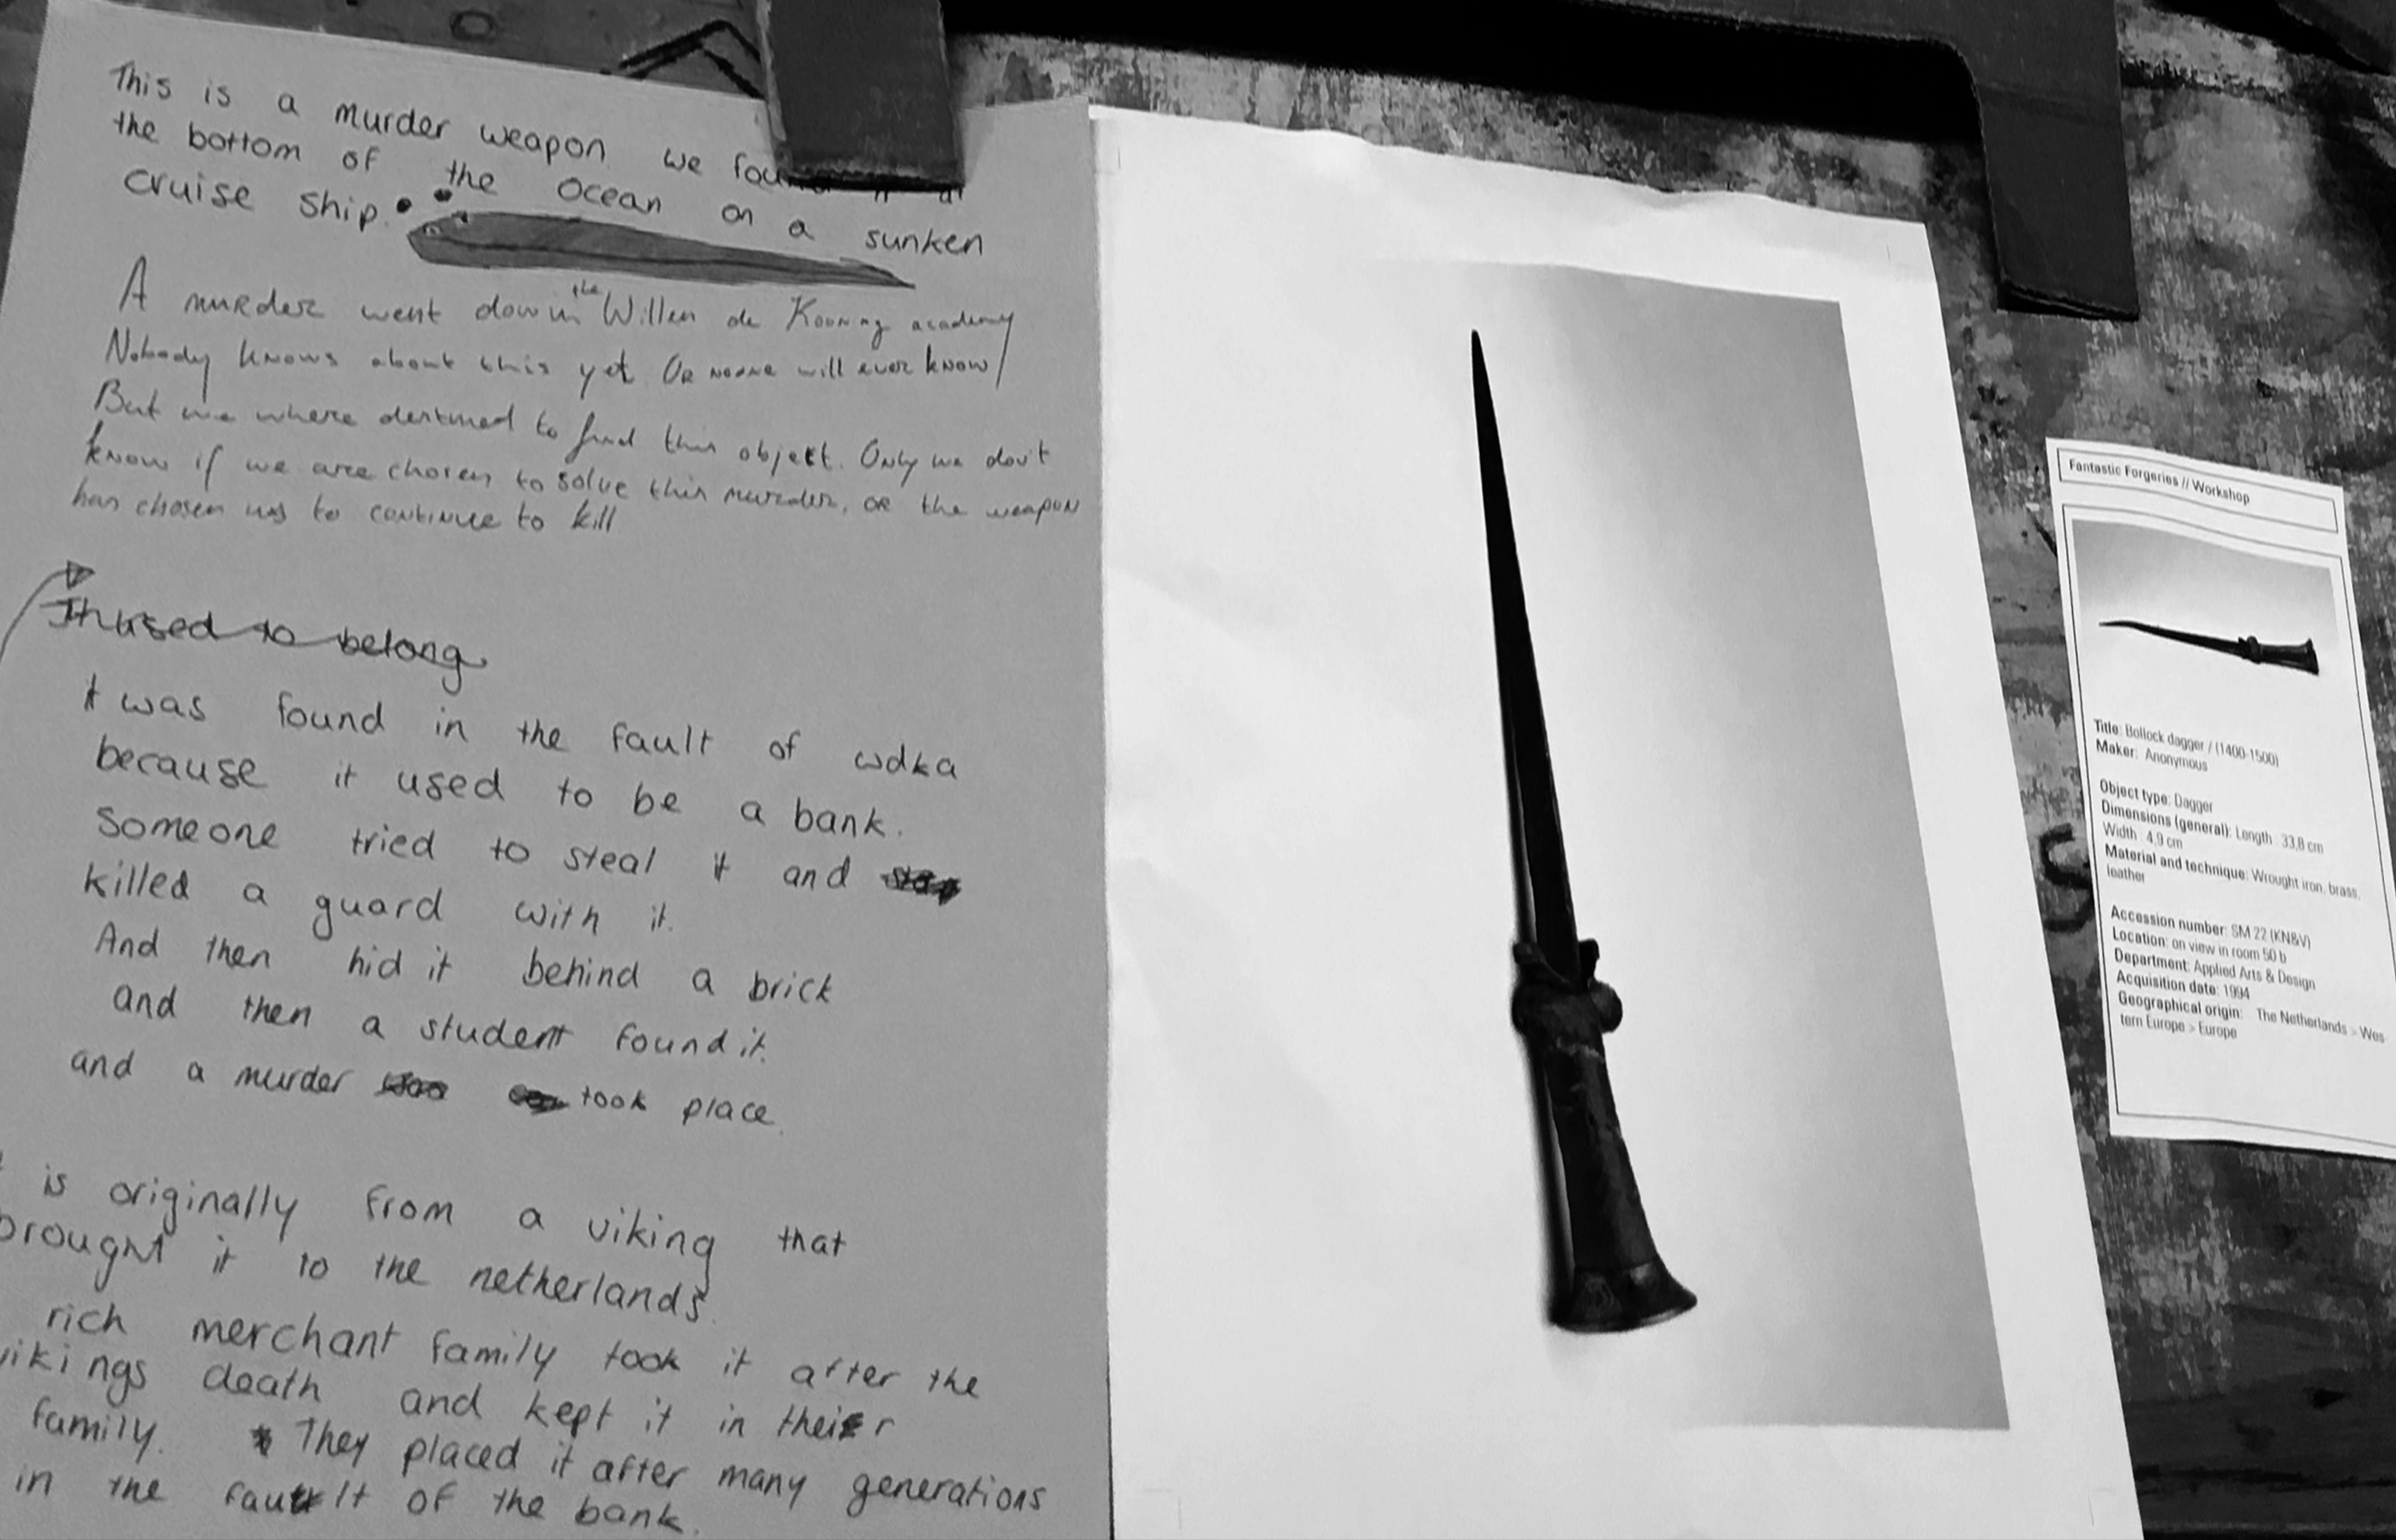 This is a murder weapon we found it at
the bottom of the ocean on a sunken
cruise ship.
A murder went down in the Willem de Kooning academy
Nobody knows about this yet. Or noone will ever know
But we where destined to find this object. Only we don't
know if we are chosen to solve this murder, or the weapon
has chosen us to continue to kill
It used to belong
It was found in the fault of wdka
because it used to be a bank.
Someone tried to steal it and
killed a guard with it.
And then hid it behind a brick
and then a student found it.
and a murder took place.
is originally from a viking that
brought it to the netherlands.
rich merchant family took it after the
vikings death and kept it in their
family. They placed it after many generations
in the fault of the bank.
Fantastic Forgeries // Workshop
Title: Bollock dagger / (1400-1500)
Maker: Anonymous
Object type: Dagger
Dimensions (general): Length : 33,8 cm
Width : 4,9 cm
Material and technique: Wrought iron, brass,
leather
Accession number: SM 22 (KN&V)
Location: on view in room 50 b
Department: Applied Arts & Design
Acquisition date: 1994
Geographical origin: The Netherlands > Wes-
tern Europe > Europe